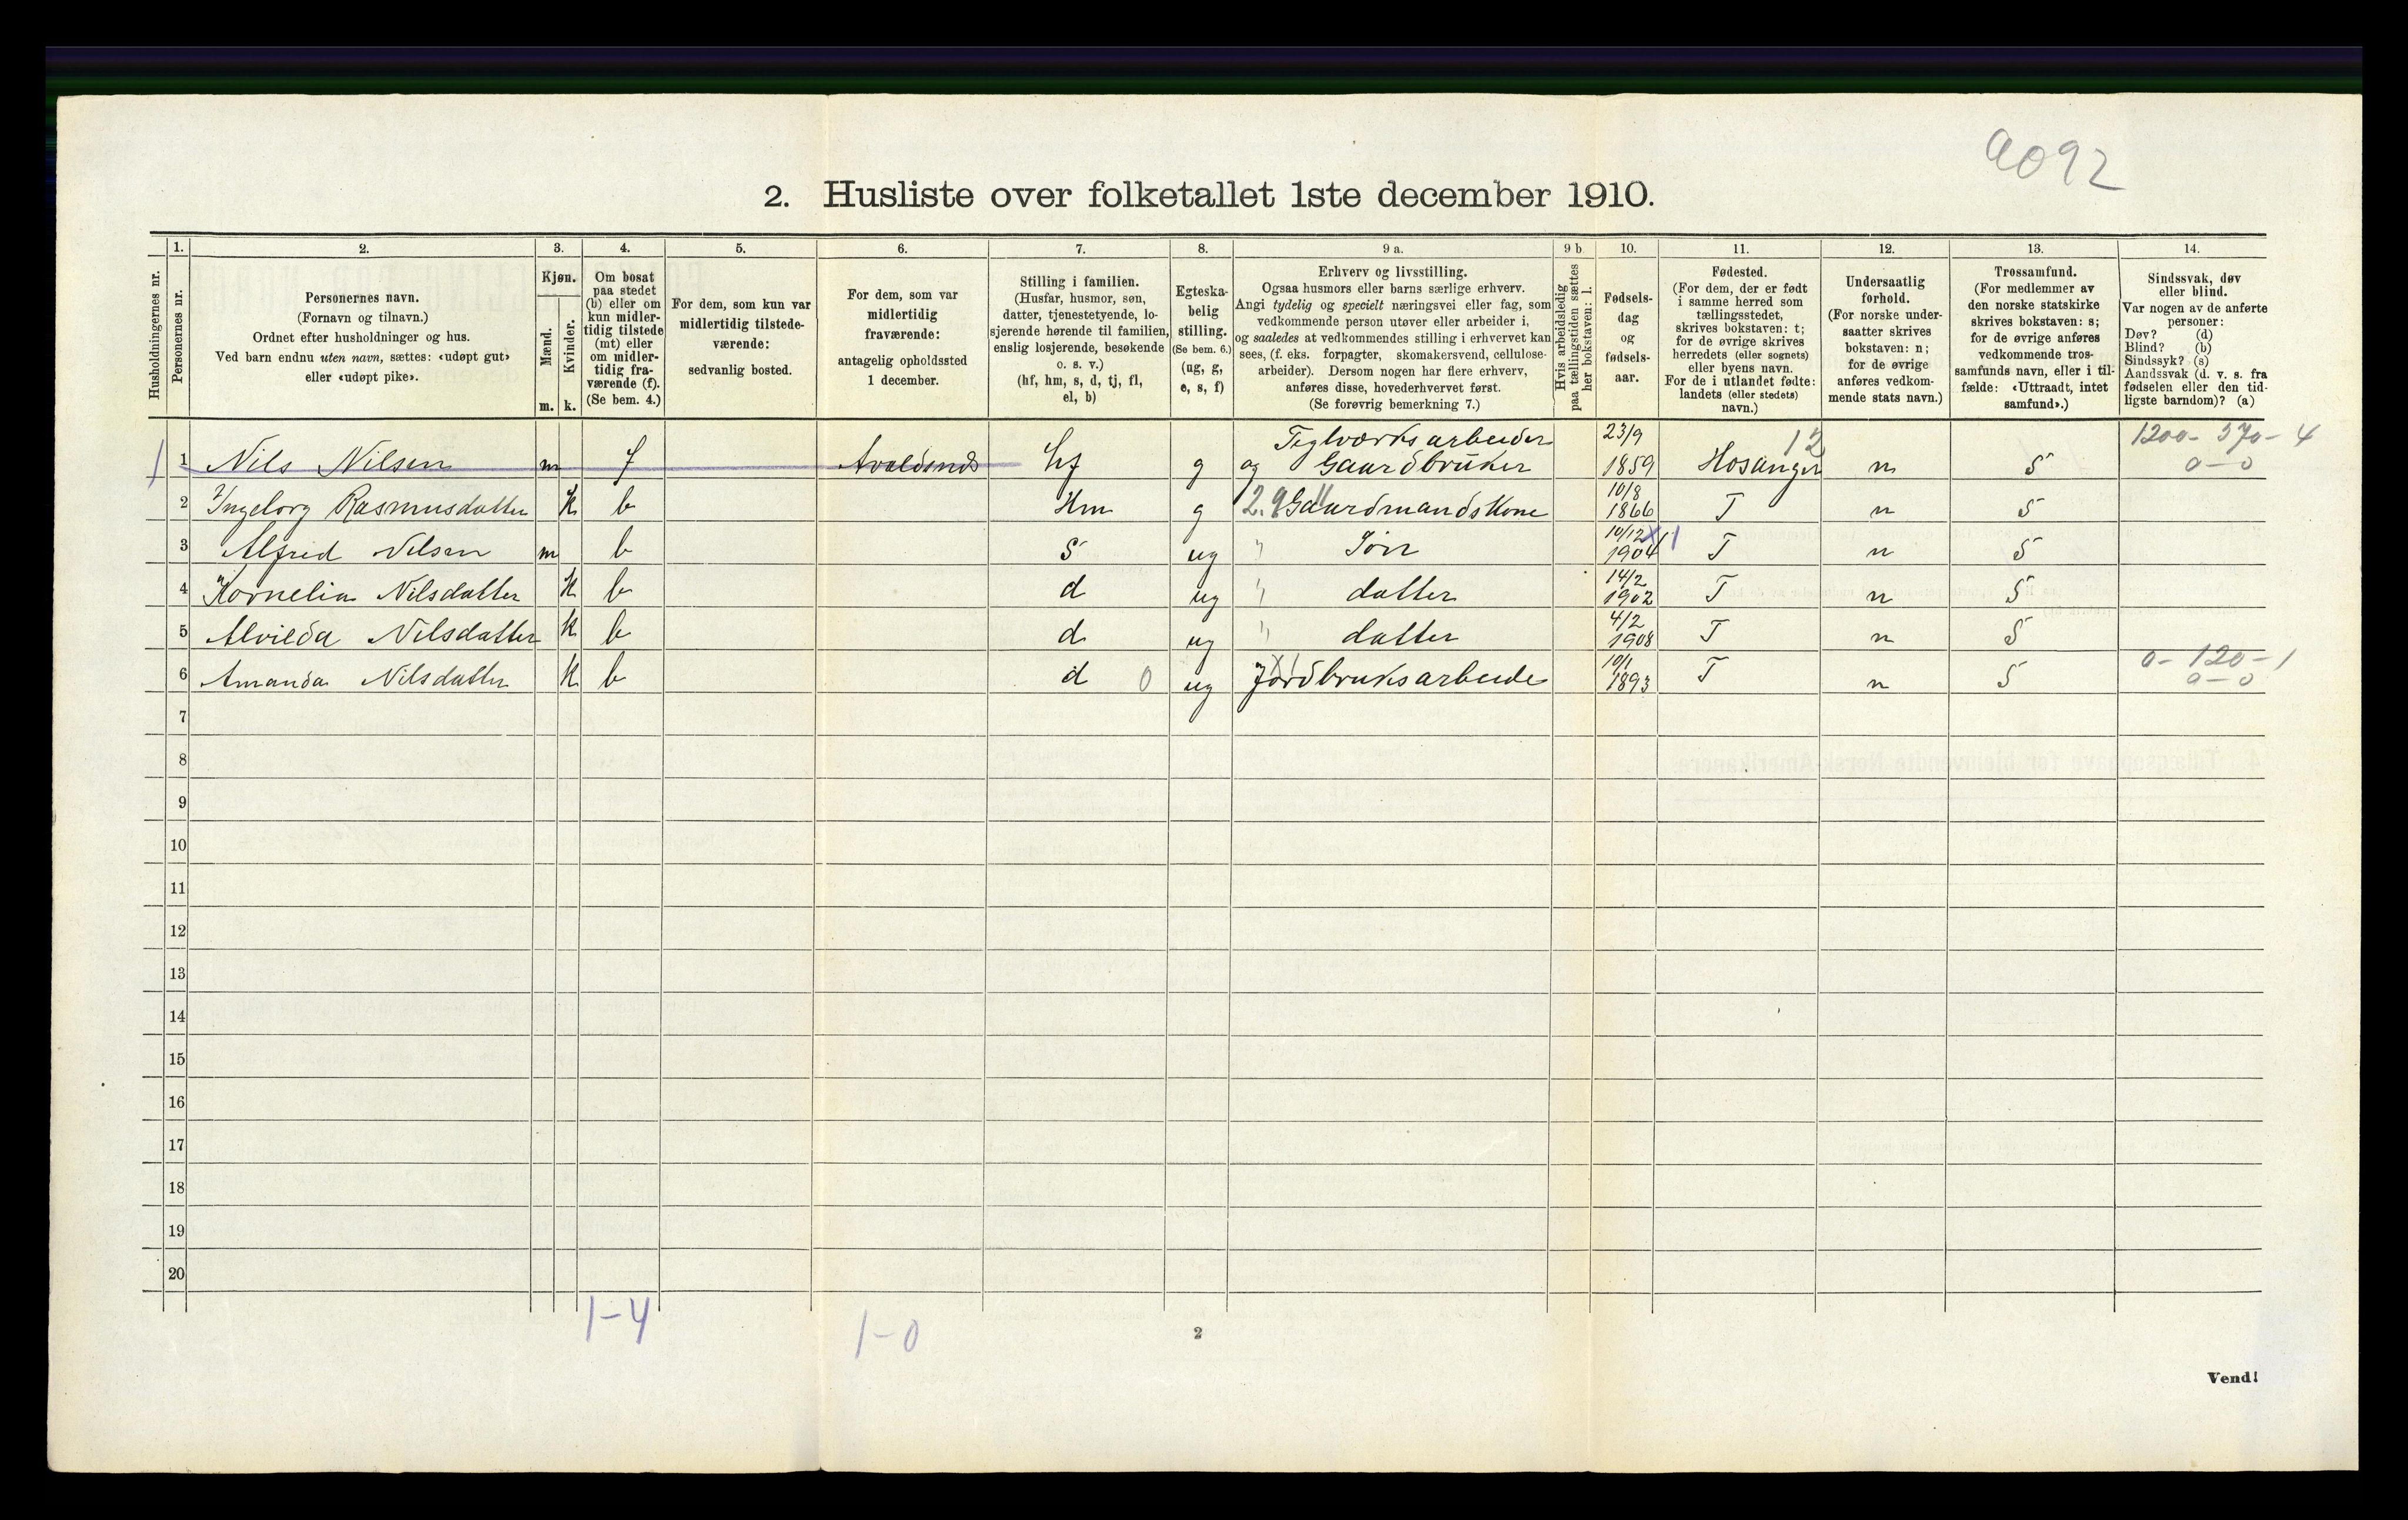 9092
2. Husliste over folketallet 1ste december 1910.
Husholdningernes nr.
1. Personernes nr.
2.
Personernes navn.
(Fornavn og tilnavn.)
Ordnet efter husholdninger og hus.
Ved barn endnu uten navn, sættes: «udøpt gut»
eller «udøpt pike».
3.
Kjøn.
Mænd. Kvinder.
m. k.
4.
Om bosat
paa stedet
(b) eller om
kun midler-
tidig tilstede
(mt) eller
om midler-
tidig fra-
værende (f).
(Se bem. 4.)
5.
For dem, som kun var
midlertidig tilstede-
værende:
sedvanlig bosted.
6.
For dem, som var
midlertidig
fraværende:
antagelig opholdssted
1 december.
7.
Stilling i familien.
(Husfar, husmor, søn,
datter, tjenestetyende, lo-
sjerende hørende til familien,
enslig losjerende, besøkende
o. s. v.)
(hf, hm, s, d, tj, fl,
el, b)
8.
Egteska-
belig
stilling.
(Se bem. 6.)
(ug, g,
e, s, f)
9 a.
Erhverv og livsstilling.
Ogsaa husmors eller barns særlige erhverv.
Angi tydelig og specielt næringsvei eller fag, som
vedkommende person utøver eller arbeider i,
og saaledes at vedkommendes stilling i erhvervet kan
sees, (f. eks. forpagter, skomakersvend, cellulose-
arbeider). Dersom nogen har flere erhverv,
anføres disse, hovederhvervet først.
(Se forøvrig bemerkning 7.)
9 b
Hvis arbeidsledig
paa tællingstiden sættes
her bokstaven: l.
10.
Fødsels-
dag
og
fødsels-
aar.
11.
Fødested.
(For dem, der er født
i samme herred som
tællingsstedet,
skrives bokstaven: t;
for de øvrige skrives
herredets (eller sognets)
eller byens navn.
For de i utlandet fødte:
landets (eller stedets)
navn.)
12.
Undersaatlig
forhold.
(For norske under-
saatter skrives
bokstaven: n;
for de øvrige
anføres vedkom-
mende stats navn.)
13.
Trossamfund.
(For medlemmer av
den norske statskirke
skrives bokstaven: s;
for de øvrige anføres
vedkommende tros-
samfunds navn, eller i til-
fælde: «Uttraadt, intet
samfund».)
14.
Sindssvak, døv
eller blind.
Var nogen av de anførte
personer:
Døv? (d)
Blind? (b)
Sindssyk? (s)
Aandssvak (d. v. s. fra
fødselen eller den tid-
ligste barndom)? (a)
Teglværksarbeider 23/9 12 1200-370-4
1 1 Nils Nilsen m f Avaldsnes hf g og Gaardbruker 1859 Hosanger n S 0-0
10/8
2 Ingeborg Rasmusdatter k b Hm g Gaardmandskone 1866 T n S
10/12
3 Alfred Nilsen m b S ug " Sön 1904 T n S
14/2
4 Kornelia Nilsdatter k b d ug " datter 1902 T n S
4/2
5 Alvilda Nilsdatter k b d ug " datter 1908 T n S
10/1 0-120-1
6 Amanda Nilsdatter k b d 0 ug Jordbruksarbeide 1893 T n S 0-0
7
8
9
10
11
12
13
14
15
16
17
18
19
20
1-4 1-0
2
Vend!